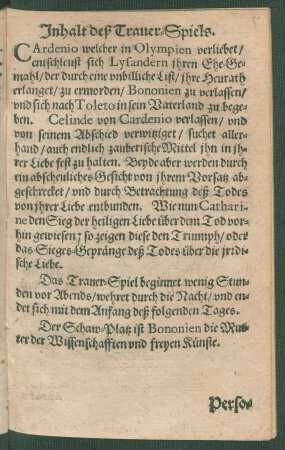 Inhalt deß Trauer-Spiels.
CArdenio welcher in Olympien verliebet/
entschleust sich Lysandern ihren Ehe-Ge-
mahl/ der durch eine unbilliche List/ ihre Heurath
erlanget/ zu ermorden/ Bononien zu verlassen/
und sich nach Toleto in sein Vaterland zu bege-
ben. Celinde von Cardenio verlassen/ und
von seinem Abschied verwitziget/ suchet aller-
hand/ auch endlich zauberische Mittel ihn in ih-
rer Liebe fest zu halten. Beyde aber werden durch
ein abscheuliches Gesicht von ihrem Vorsatz ab-
geschrecket/ und durch Betrachtung deß Todes
von ihrer Liebe entbunden. Wie nun Cathari-
ne den Sieg der heiligen Liebe über dem Tod vor-
hin gewiesen; so zeigen diese den Triumph/ oder
das Sieges-Gepränge deß Todes über die jrrdi-
sche Liebe.
Das Trauer-Spiel beginnet wenig Stun-
den vor Abends/ wehret durch die Nacht/ und en-
det sich mit dem Anfang deß folgenden Tages.
Der Schaw-Platz ist Bononien die Mut-
ter der Wissenschafften und freyen Künste.
Perso-